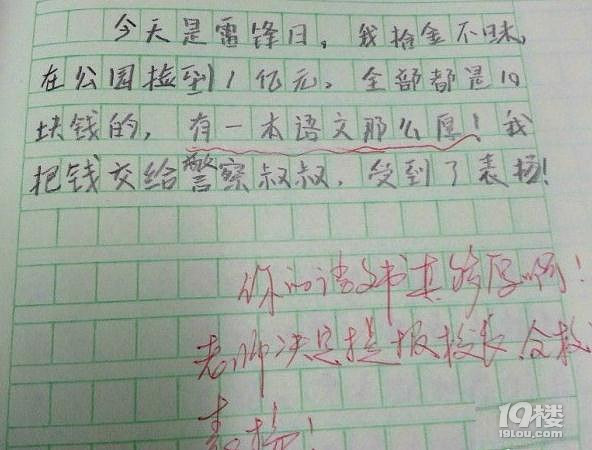 今天是雷锋日，我拾金不昧，
在公园捡到1亿元。全部都是10
块钱的，有一本语文那么厚！我
把钱交给警察叔叔，受到了表扬！
你的语文书真够厚啊！
老师决定提报校长，全校
表扬！
19楼
19lou.com